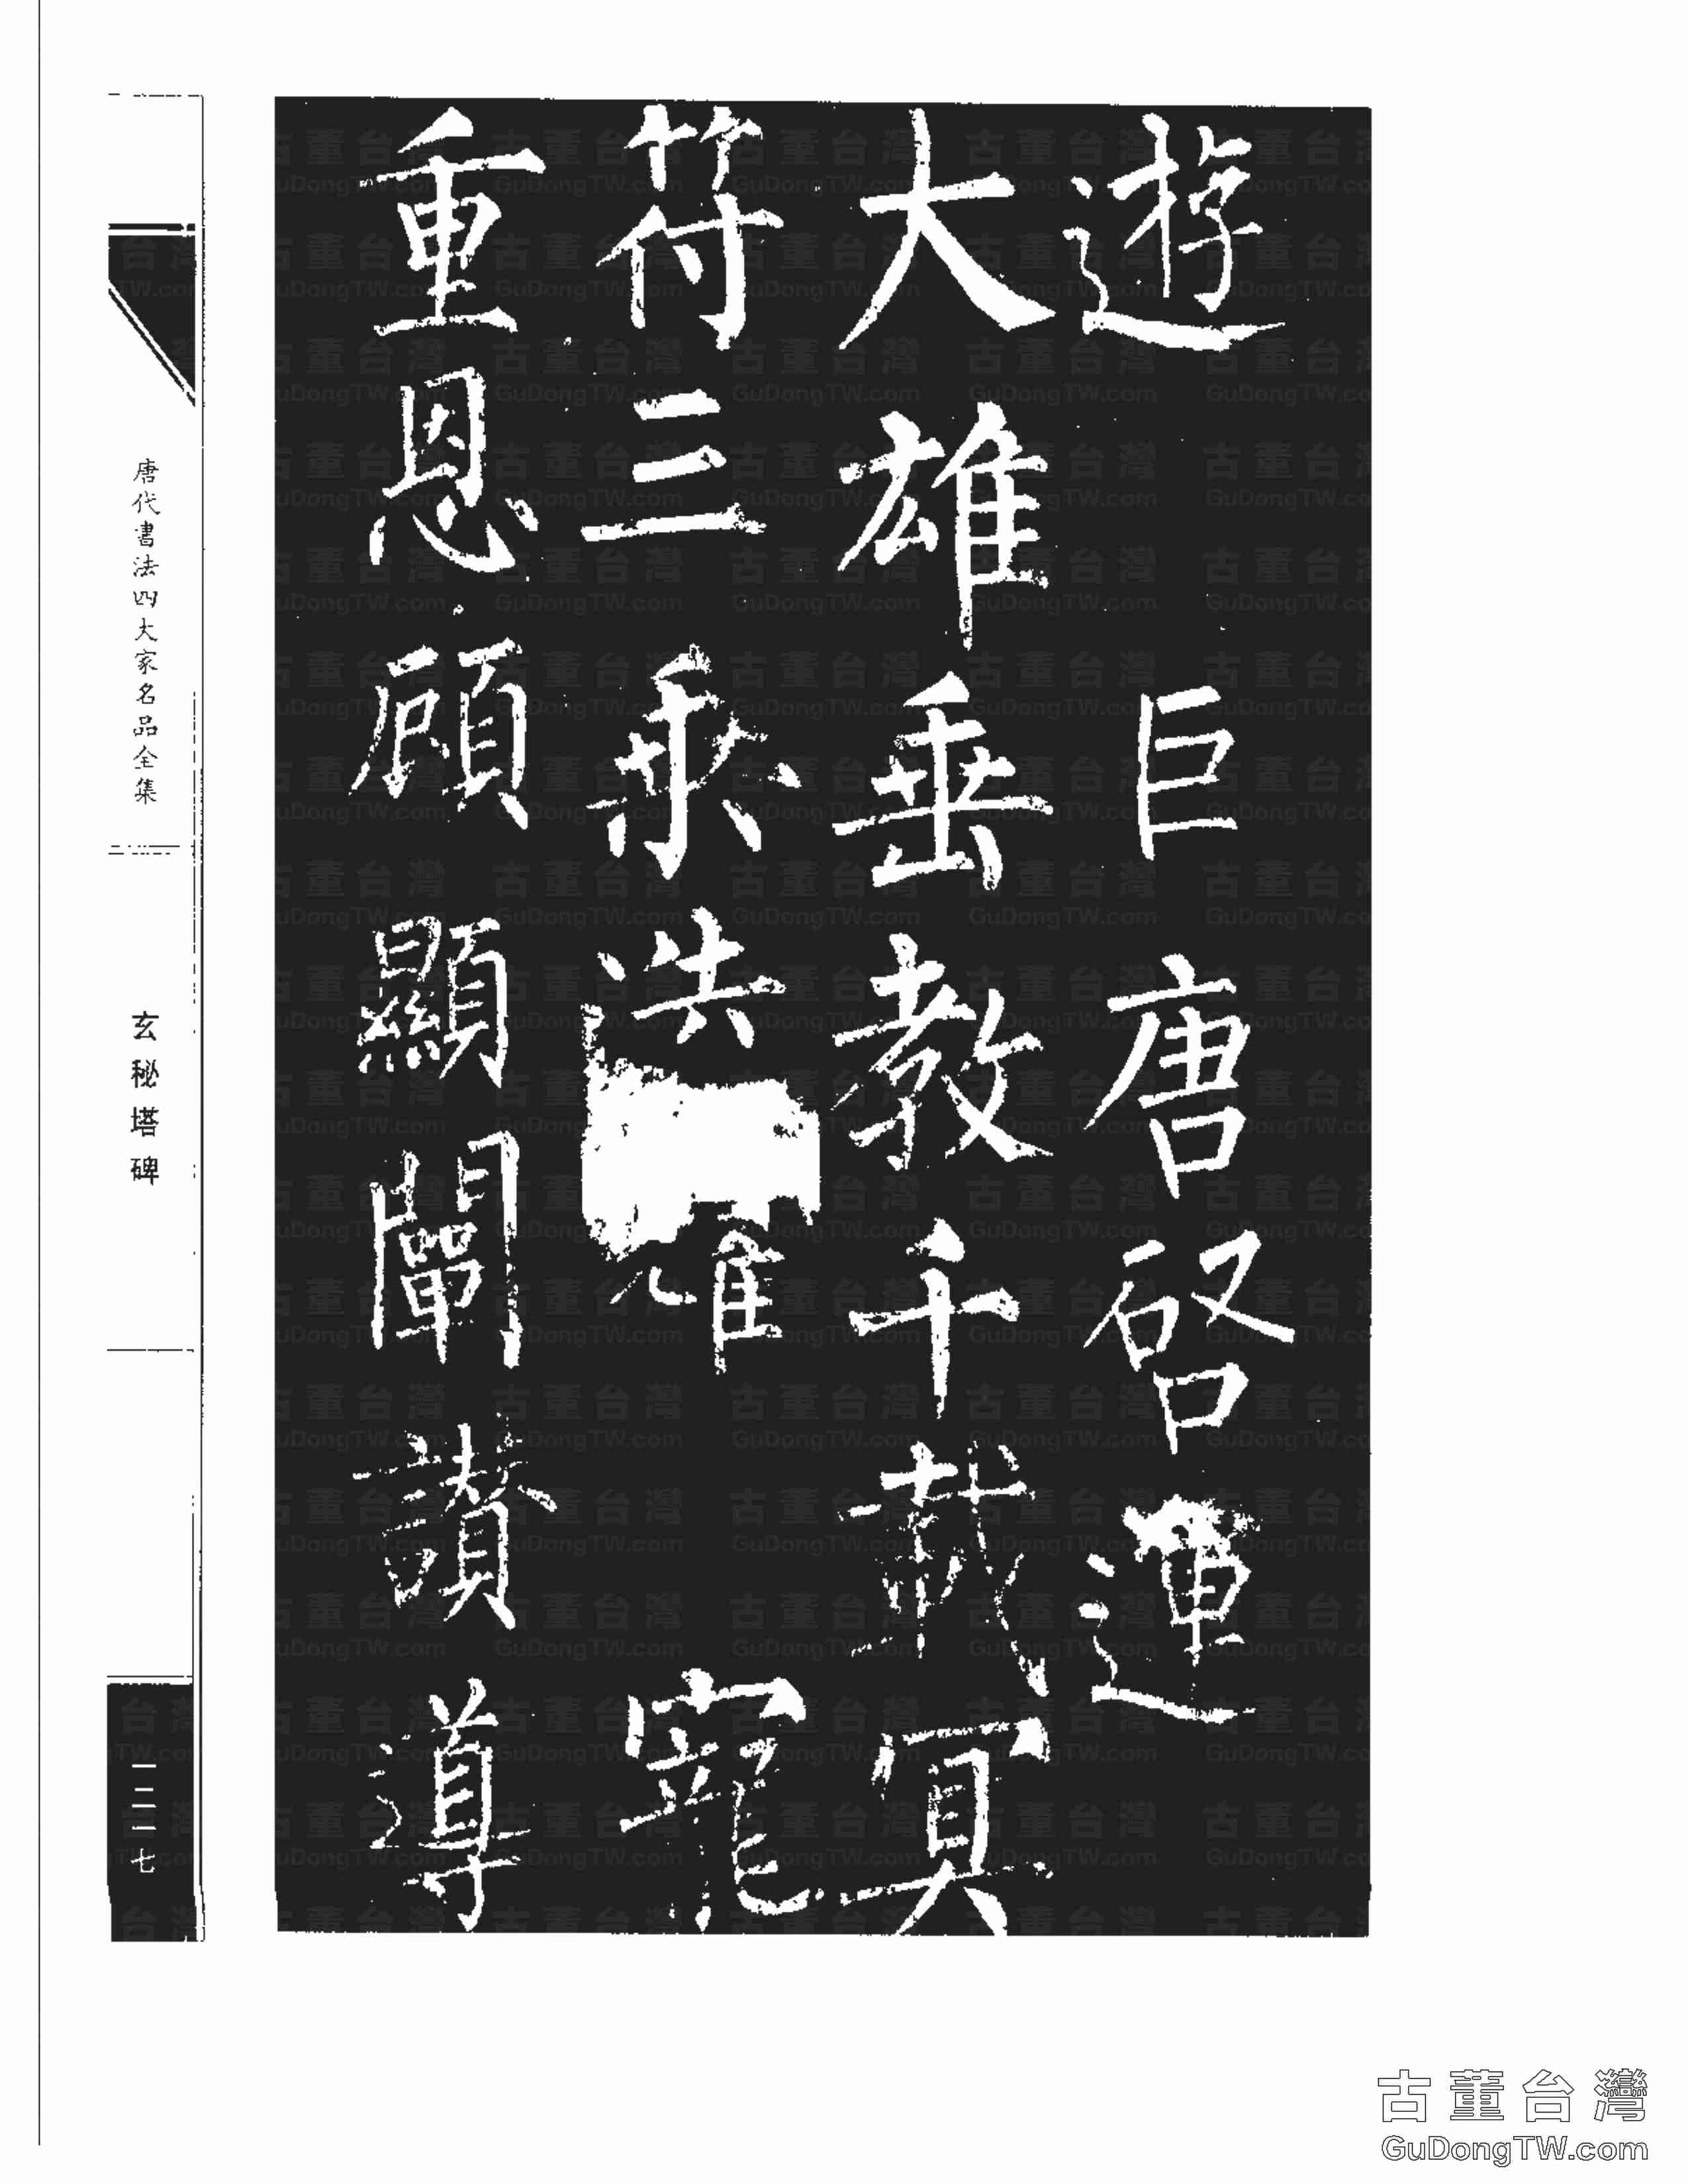 遊巨唐啓運
大雄垂教千載冥
符三乘迭耀寵
重恩顧顯闡讃導
唐代書法四大家名品全集
玄秘塔碑
一二二七
古董台灣
GuDongTW.com